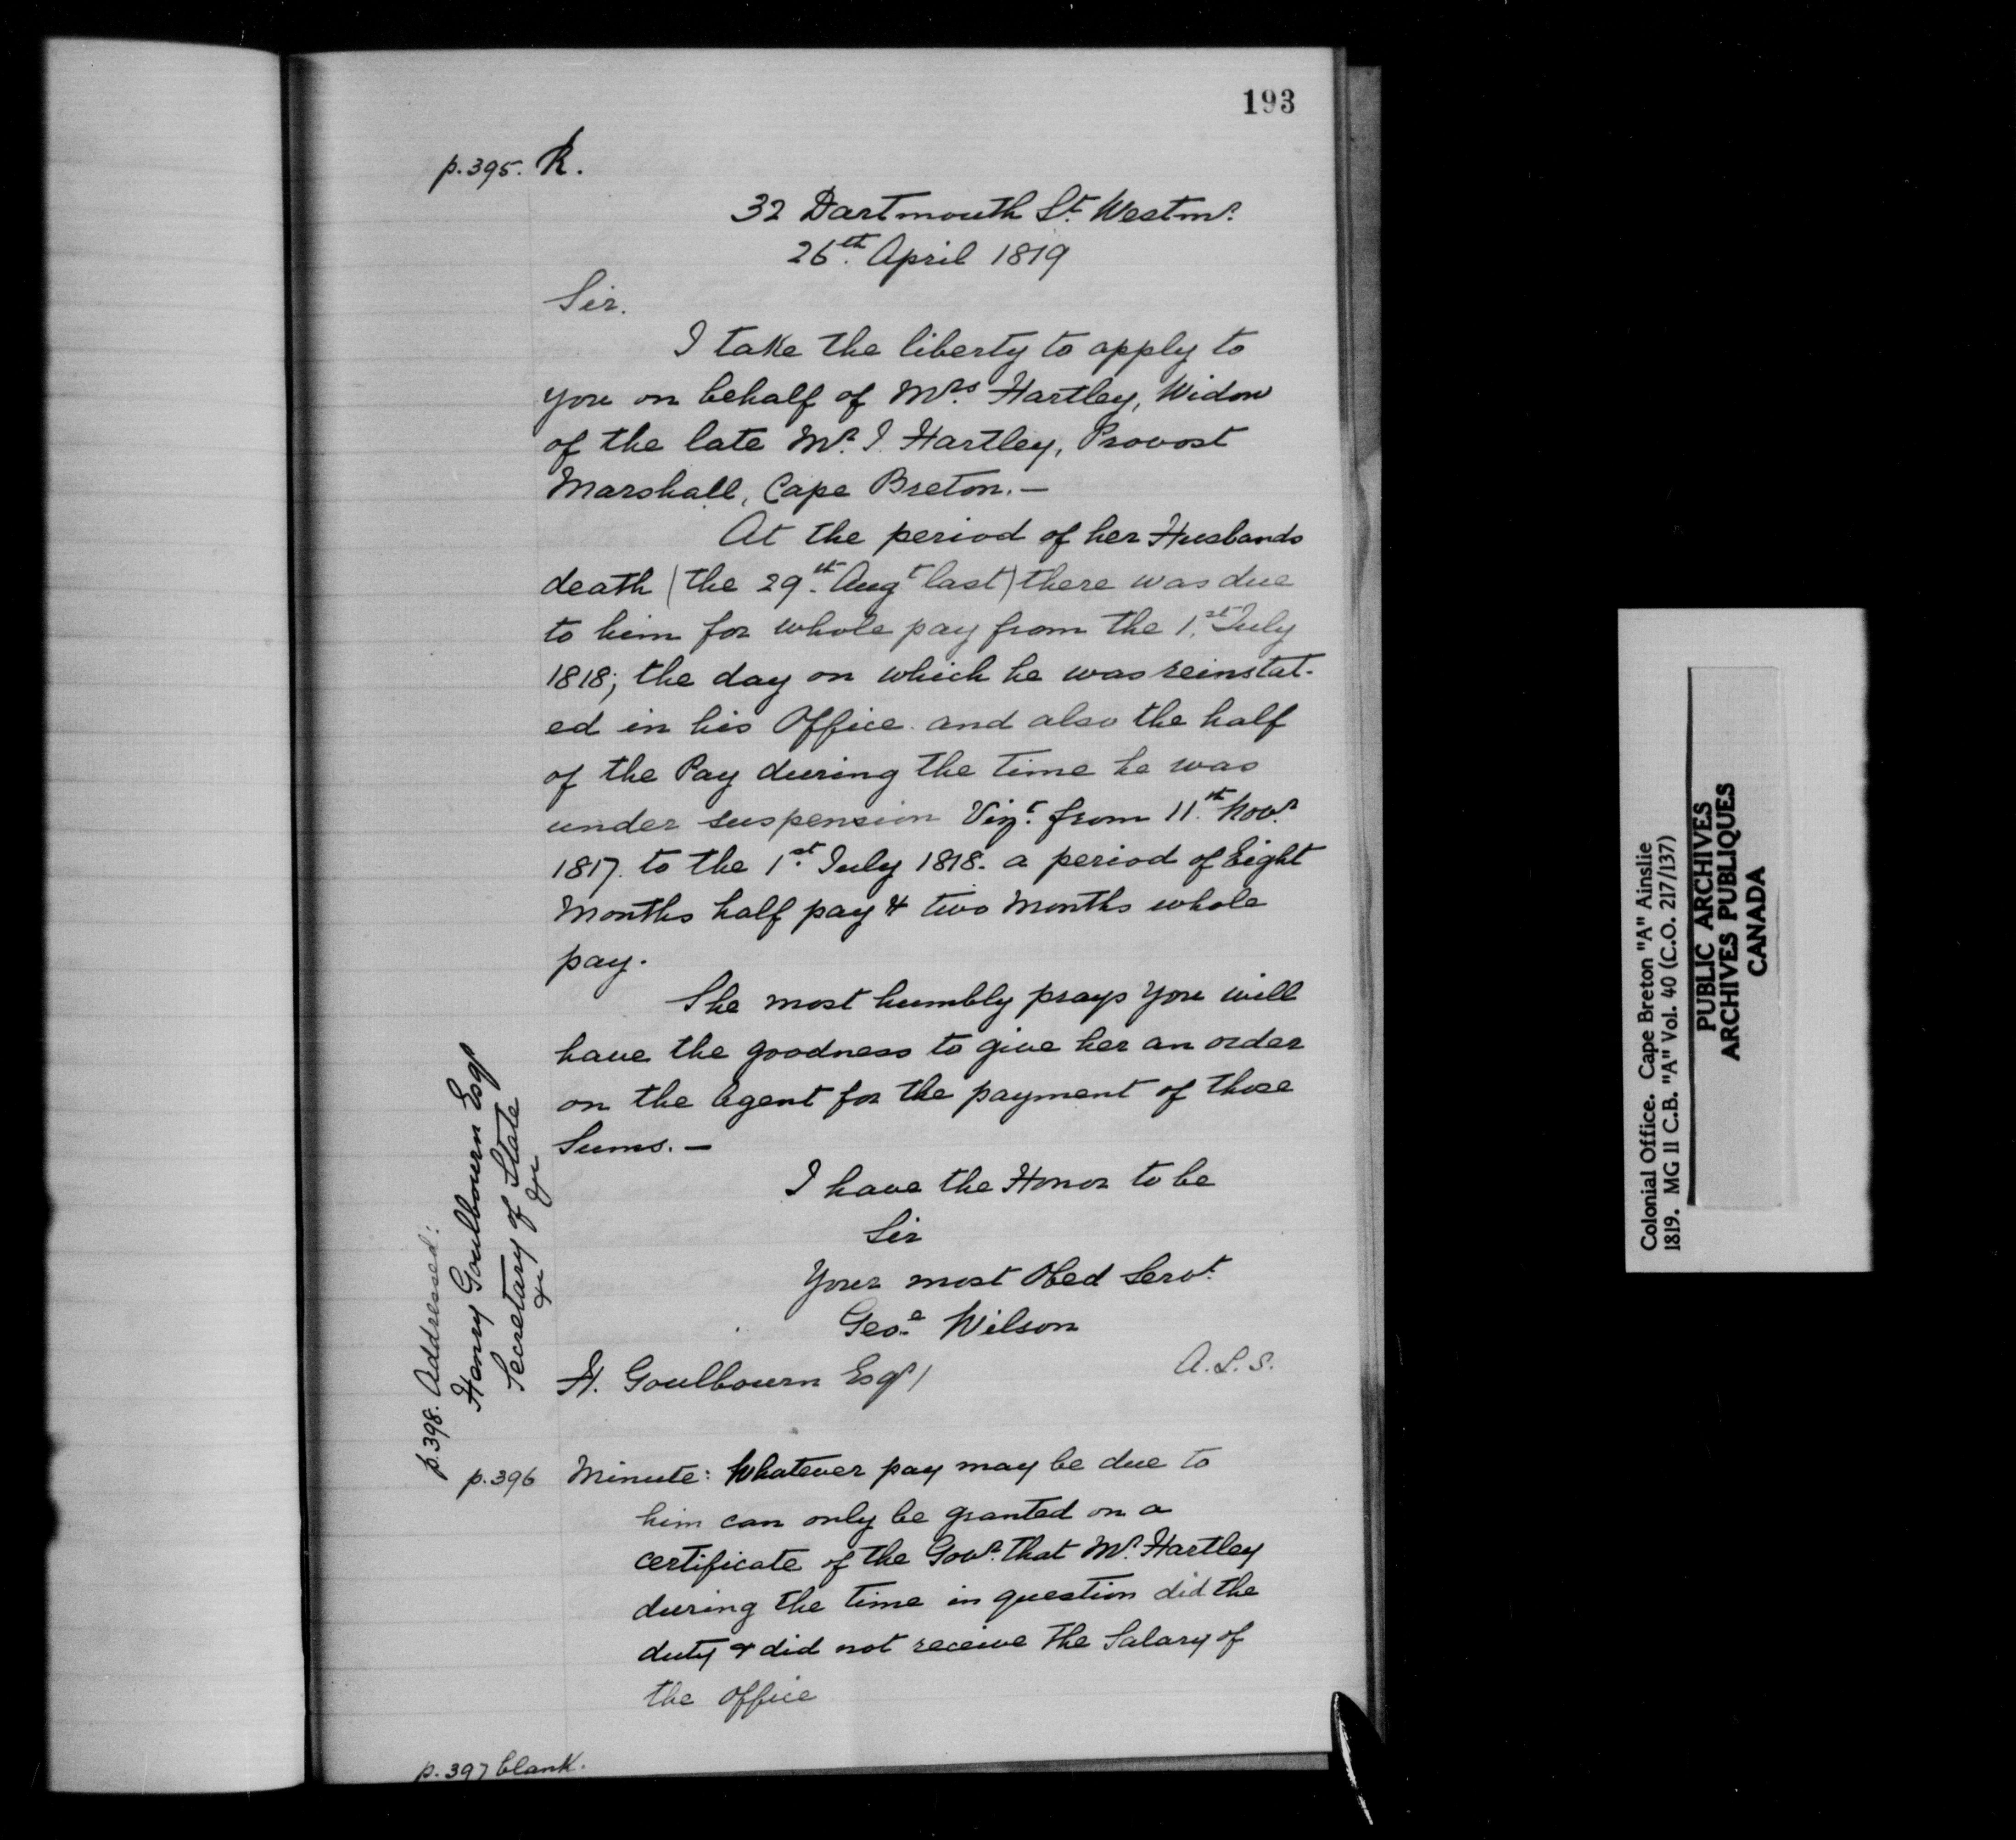 193
p.395. R.
32 Dartmouth St. Westmr.
26th. April 1819
Sir.
I take the liberty to apply to
you on behalf of Mrs. Hartley, Widow
of the late Mr. I. Hartley, Provost
Marshall, Cape Breton.—
At the period of her Husbands
death (the 29th. Augt last) there was due
to him for whole pay from the 1st. July
1818; the day on which he was reinstat-
ed in his Office. and also the half
of the Pay during the time he was
under suspension Vizt. from 11th. Novr.
1817. to the 1st. July 1818. a period of Eight
Months half pay & two Months whole
pay.
She most humbly prays you will
have the goodness to give her an order
on the Agent for the payment of those
Sums.—
I have the Honor to be
Sir
Your most Obed Servt.
Geoe. Wilson
A.L.S.
H. Goulbourn Esqr/
p.398. Addressed:
Henry Goulbourn Esqr
Secretary of State
&c &c
p.396 Minute: Whatever pay may be due to
him can only be granted on a
certificate of the Govr. that Mr. Hartley
during the time in question did the
duty & did not receive the Salary of
the office
p.397 blank.
Colonial Office. Cape Breton "A" Ainslie
1819. MG 11 C.B. "A" Vol. 40 (C.O. 217/137)
PUBLIC ARCHIVES
ARCHIVES PUBLIQUES
CANADA